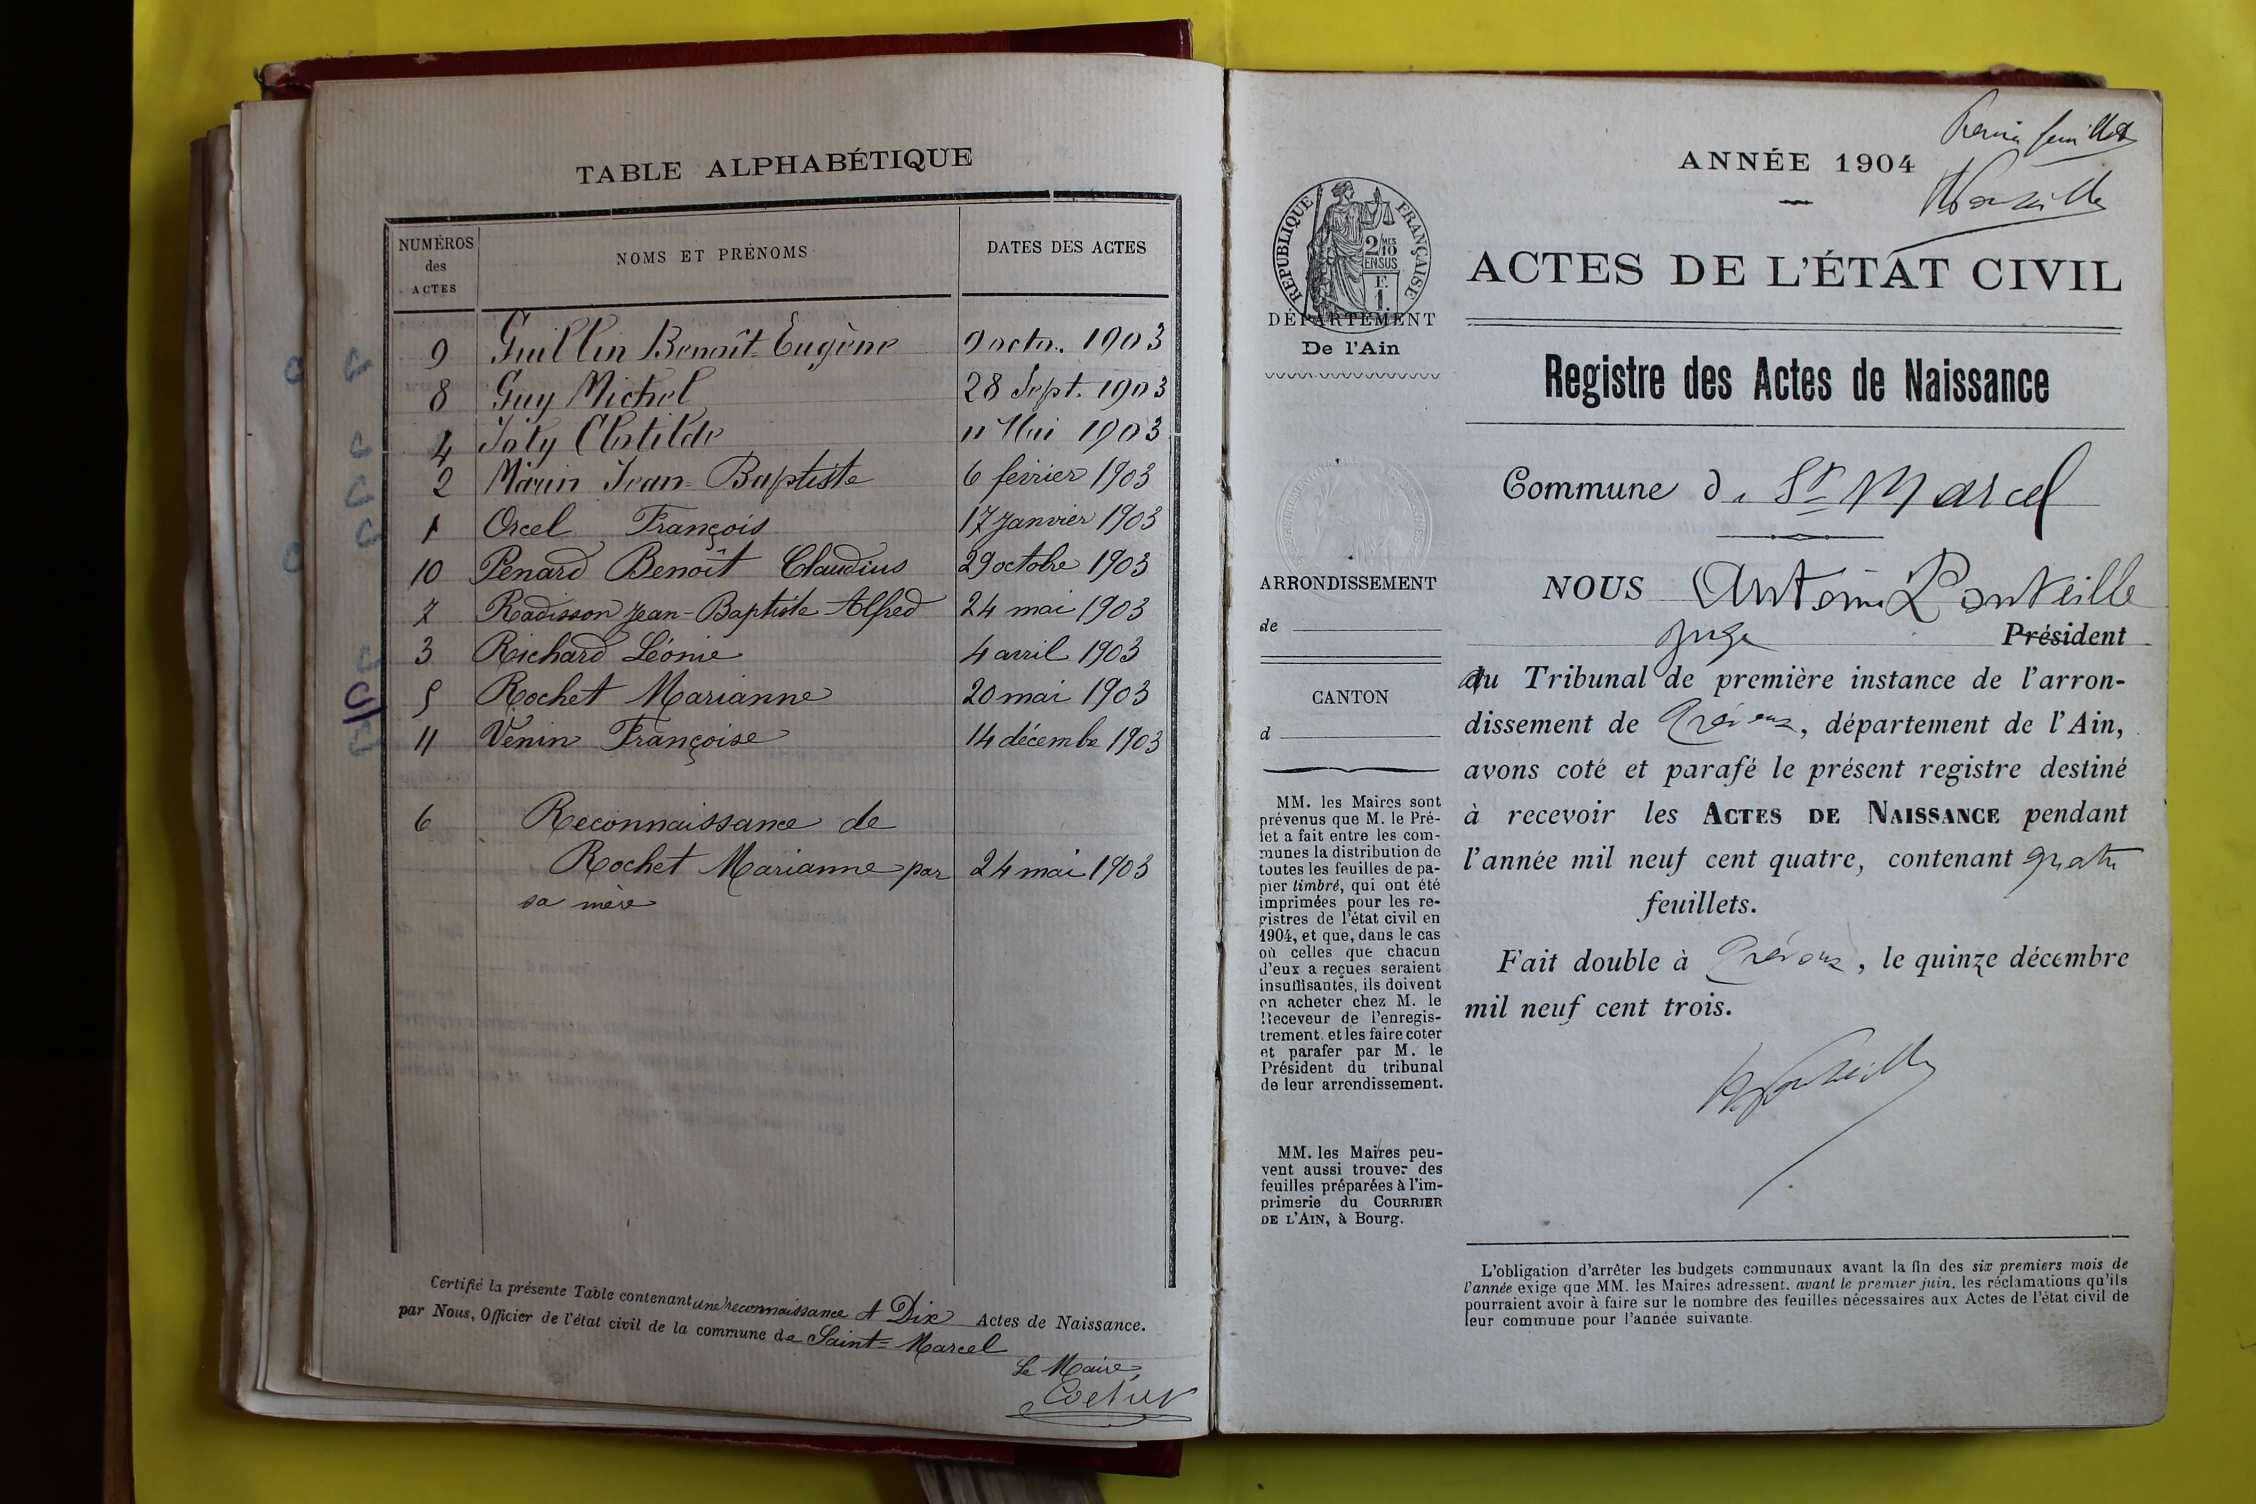 TABLE ALPHABÉTIQUE
NUMÉROS des ACTES NOMS ET PRÉNOMS DATES DES ACTES
9 Guillin Benoît-Eugène 9 octo. 1903
8 Guy Michel 28 Sept. 1903
4 Joly Clotilde 11 Mai 1903
2 Marin Jean-Baptiste 6 février 1903
1 Orcel François 17 janvier 1903
10 Penard Benoît Claudius 29 octobre 1903
7 Radisson Jean-Baptiste Alfred 24 mai 1903
3 Richard Léonie 4 avril 1903
5 Rochet Marianne 20 mai 1903
11 Venin Françoise 14 décembe 1903
6 Reconnaissance de
Rochet Marianne par 24 mai 1903
sa mère
Certifié la présente Table contenant une reconnaissance et Dix Actes de Naissance.
par Nous, Officier de l'état civil de la commune de Saint-Marcel
Le Maire,
ANNÉE 1904
RÉPUBLIQUE FRANÇAISE
2/10 MES
EN SUS
F.
1.
DÉPARTEMENT
De l'Ain
ARRONDISSEMENT
de
CANTON
d
MM. les Maires sont
prévenus que M. le Pré-
fet a fait entre les com-
munes la distribution de
toutes les feuilles de pa-
pier timbré, qui ont été
imprimées pour les re-
gistres de l'état civil en
1904, et que, dans le cas
où celles que chacun
d'eux a reçues seraient
insuffisantes, ils doivent
en acheter chez M. le
Receveur de l'enregis-
trement et les faire coter
et parafer par M. le
Président du tribunal
de leur arrondissement.
MM. les Maires peu-
vent aussi trouver des
feuilles préparées à l'im-
primerie du COURRIER
DE L'AIN, à Bourg.
Premier feuillet
ACTES DE L'ÉTAT CIVIL
Registre des Actes de Naissance
Commune de St Marcel
NOUS Antoine Ponteille
Juge Président
du Tribunal de première instance de l'arron-
dissement de Trévoux, département de l'Ain,
avons coté et parafé le présent registre destiné
à recevoir les ACTES DE NAISSANCE pendant
l'année mil neuf cent quatre, contenant quatre
feuillets.
Fait double à Trévoux, le quinze décembre
mil neuf cent trois.
L'obligation d'arrêter les budgets communaux avant la fin des six premiers mois de
l'année exige que MM. les Maires adressent, avant le premier juin, les réclamations qu'ils
pourraient avoir à faire sur le nombre des feuilles nécessaires aux Actes de l'état civil de
leur commune pour l'année suivante.